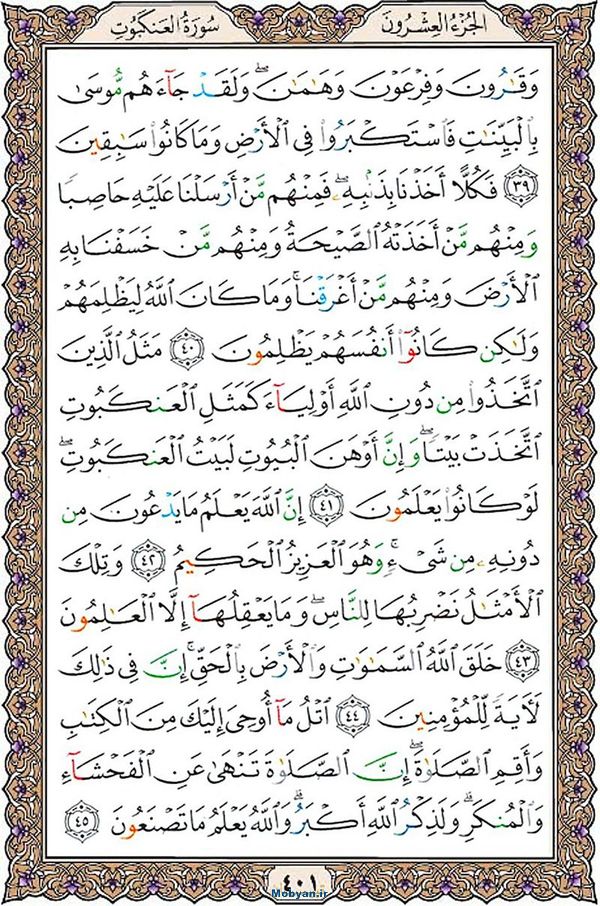 الجُزءُ العِشرُونَ سُورَةُ العَنكَبُوتِ
وَقَٰرُونَ وَفِرۡعَوۡنَ وَهَٰمَٰنَۖ وَلَقَدۡ جَآءَهُم مُّوسَىٰ
بِٱلۡبَيِّنَٰتِ فَٱسۡتَكۡبَرُواْ فِي ٱلۡأَرۡضِ وَمَا كَانُواْ سَٰبِقِينَ
٣٩ فَكُلًّا أَخَذۡنَا بِذَنۢبِهِۦۖ فَمِنۡهُم مَّنۡ أَرۡسَلۡنَا عَلَيۡهِ حَاصِبٗا
وَمِنۡهُم مَّنۡ أَخَذَتۡهُ ٱلصَّيۡحَةُ وَمِنۡهُم مَّنۡ خَسَفۡنَا بِهِ
ٱلۡأَرۡضَ وَمِنۡهُم مَّنۡ أَغۡرَقۡنَاۚ وَمَا كَانَ ٱللَّهُ لِيَظۡلِمَهُمۡ
وَلَٰكِن كَانُوٓاْ أَنفُسَهُمۡ يَظۡلِمُونَ ٤٠ مَثَلُ ٱلَّذِينَ
ٱتَّخَذُواْ مِن دُونِ ٱللَّهِ أَوۡلِيَآءَ كَمَثَلِ ٱلۡعَنكَبُوتِ
ٱتَّخَذَتۡ بَيۡتٗاۖ وَإِنَّ أَوۡهَنَ ٱلۡبُيُوتِ لَبَيۡتُ ٱلۡعَنكَبُوتِۖ
لَوۡ كَانُواْ يَعۡلَمُونَ ٤١ إِنَّ ٱللَّهَ يَعۡلَمُ مَا يَدۡعُونَ مِن
دُونِهِۦ مِن شَيۡءٖۚ وَهُوَ ٱلۡعَزِيزُ ٱلۡحَكِيمُ ٤٢ وَتِلۡكَ
ٱلۡأَمۡثَٰلُ نَضۡرِبُهَا لِلنَّاسِۖ وَمَا يَعۡقِلُهَآ إِلَّا ٱلۡعَٰلِمُونَ
٤٣ خَلَقَ ٱللَّهُ ٱلسَّمَٰوَٰتِ وَٱلۡأَرۡضَ بِٱلۡحَقِّۚ إِنَّ فِي ذَٰلِكَ
لَأٓيَةٗ لِّلۡمُؤۡمِنِينَ ٤٤ ٱتۡلُ مَآ أُوحِيَ إِلَيۡكَ مِنَ ٱلۡكِتَٰبِ
وَأَقِمِ ٱلصَّلَوٰةَۖ إِنَّ ٱلصَّلَوٰةَ تَنۡهَىٰ عَنِ ٱلۡفَحۡشَآءِ
وَٱلۡمُنكَرِۗ وَلَذِكۡرُ ٱللَّهِ أَكۡبَرُۗ وَٱللَّهُ يَعۡلَمُ مَا تَصۡنَعُونَ ٤٥
٤٠١
Mobyan.ir